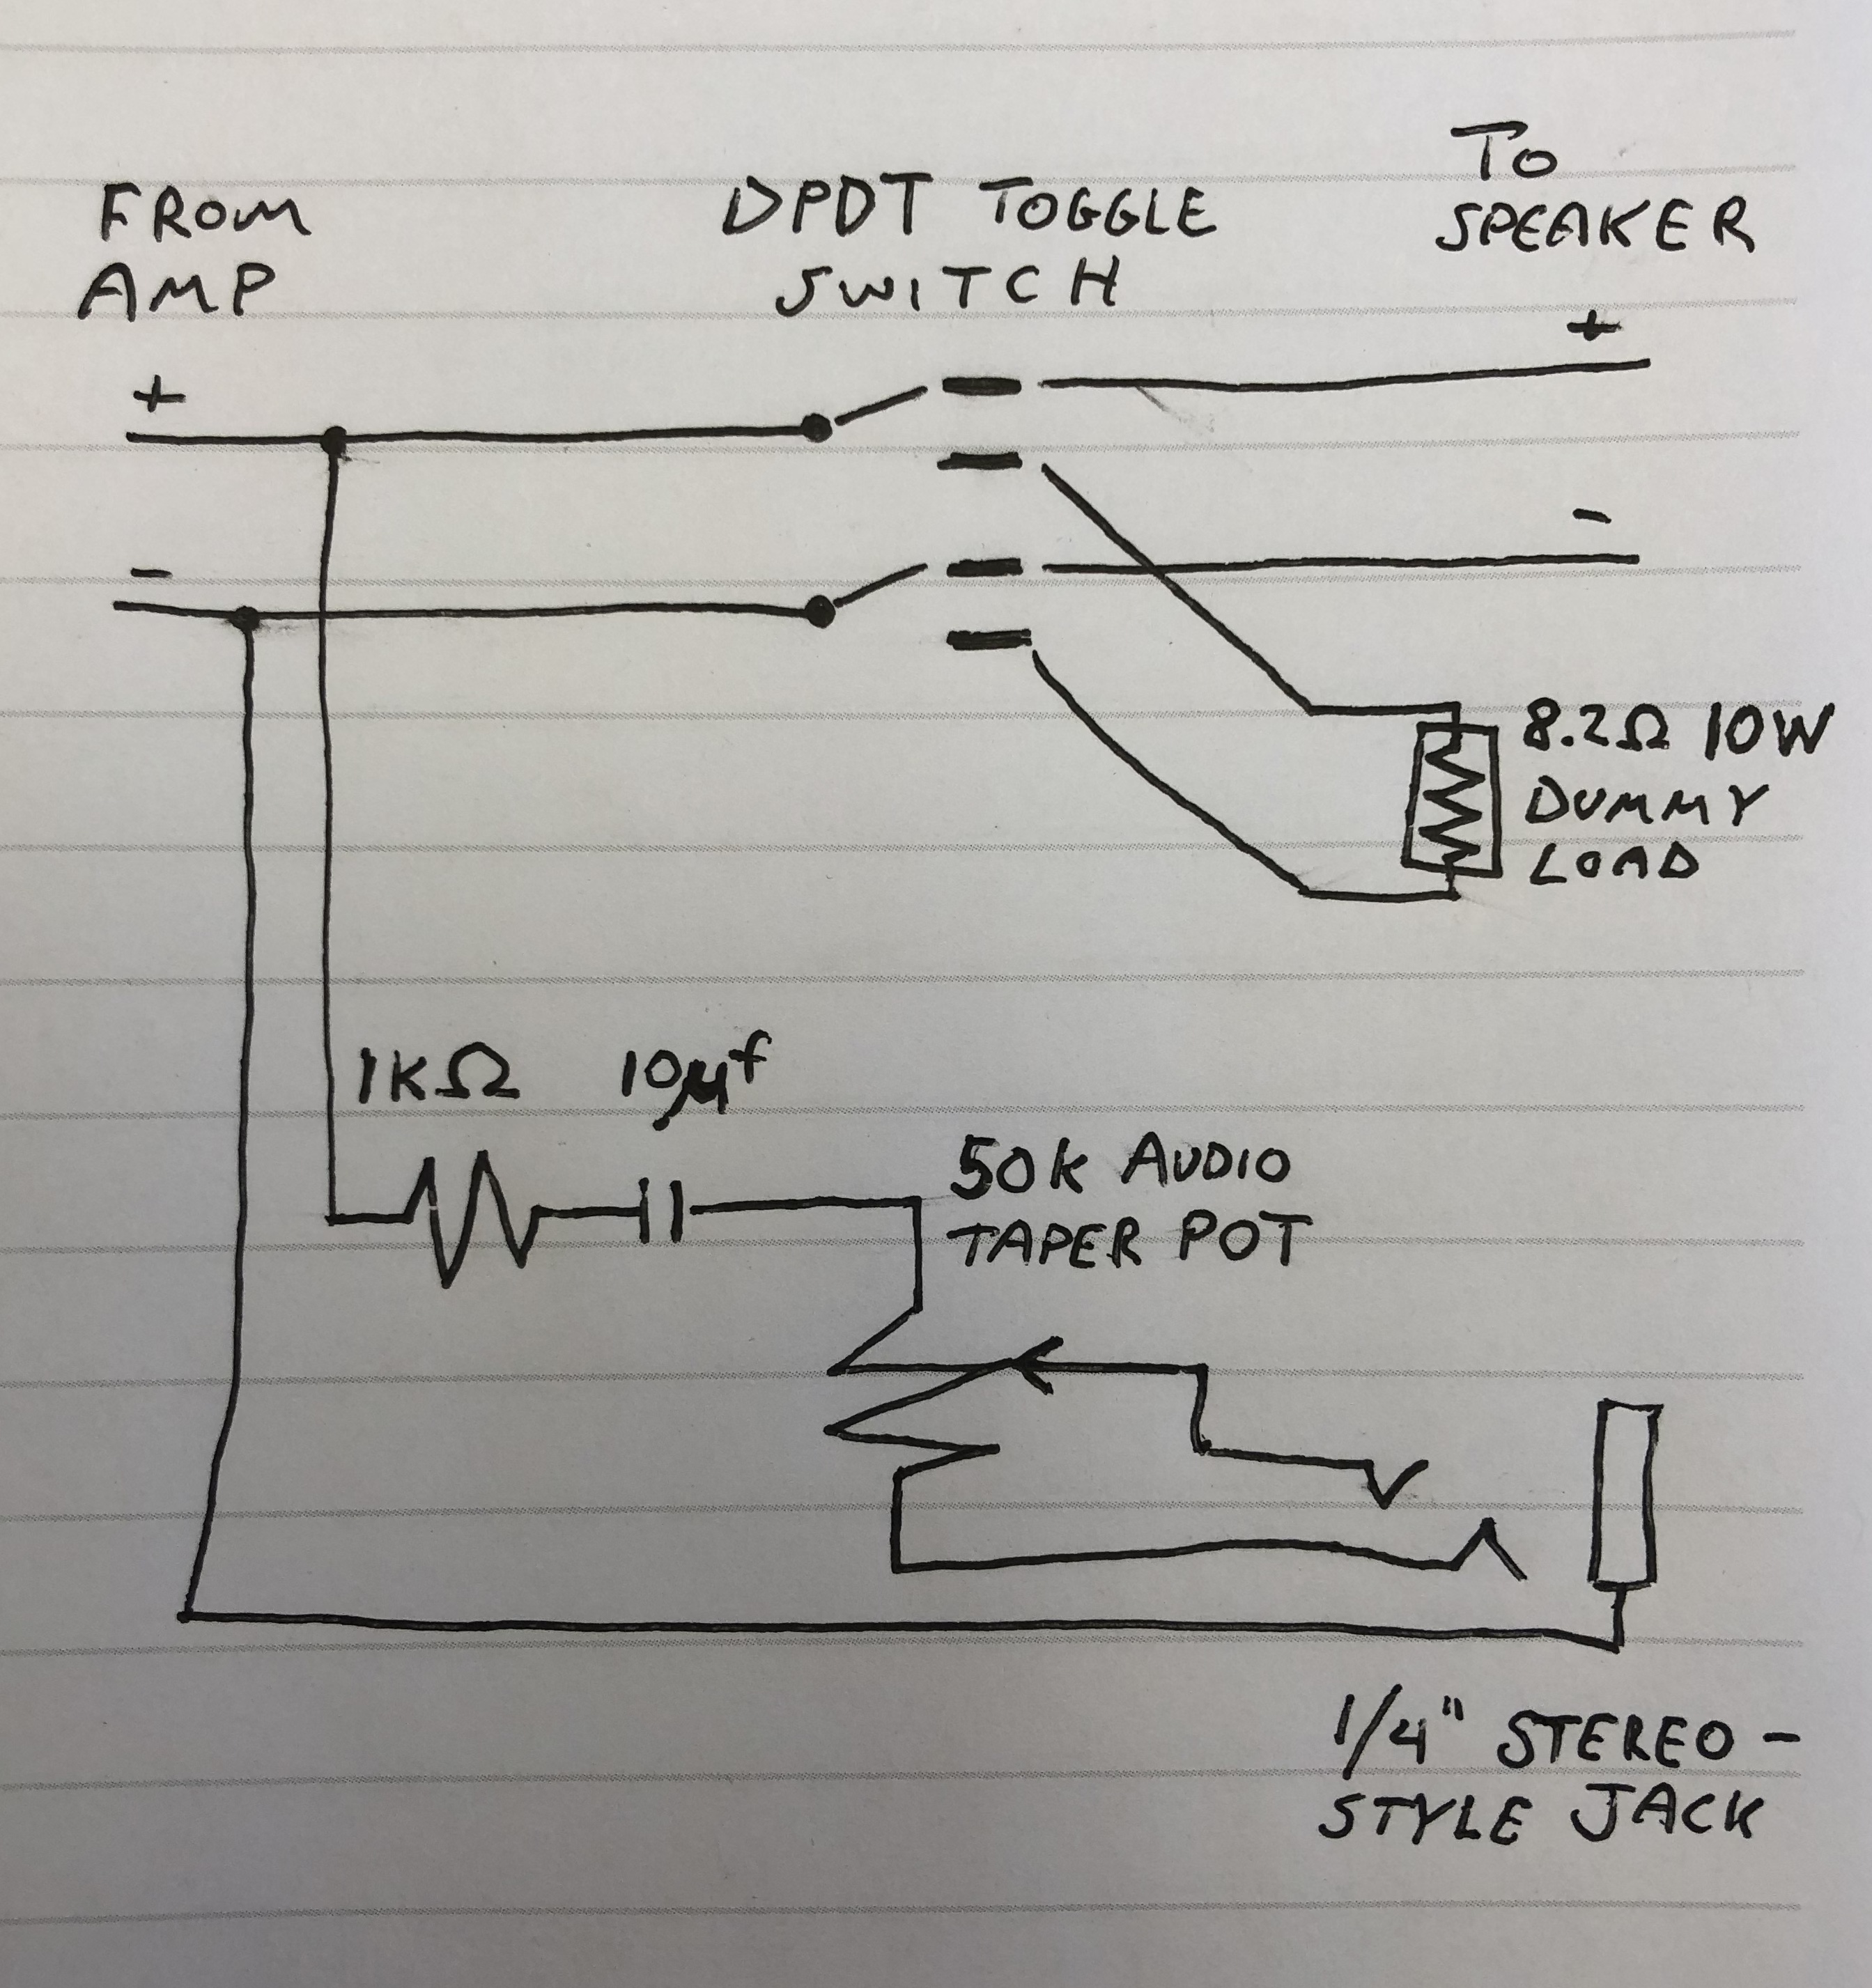 FROM
AMP
DPDT TOGGLE
SWITCH
TO
SPEAKER
+
+
-
-
8.2Ω 10W
DUMMY
LOAD
1KΩ
10μf
50K AUDIO
TAPER POT
1/4" STEREO-
STYLE JACK